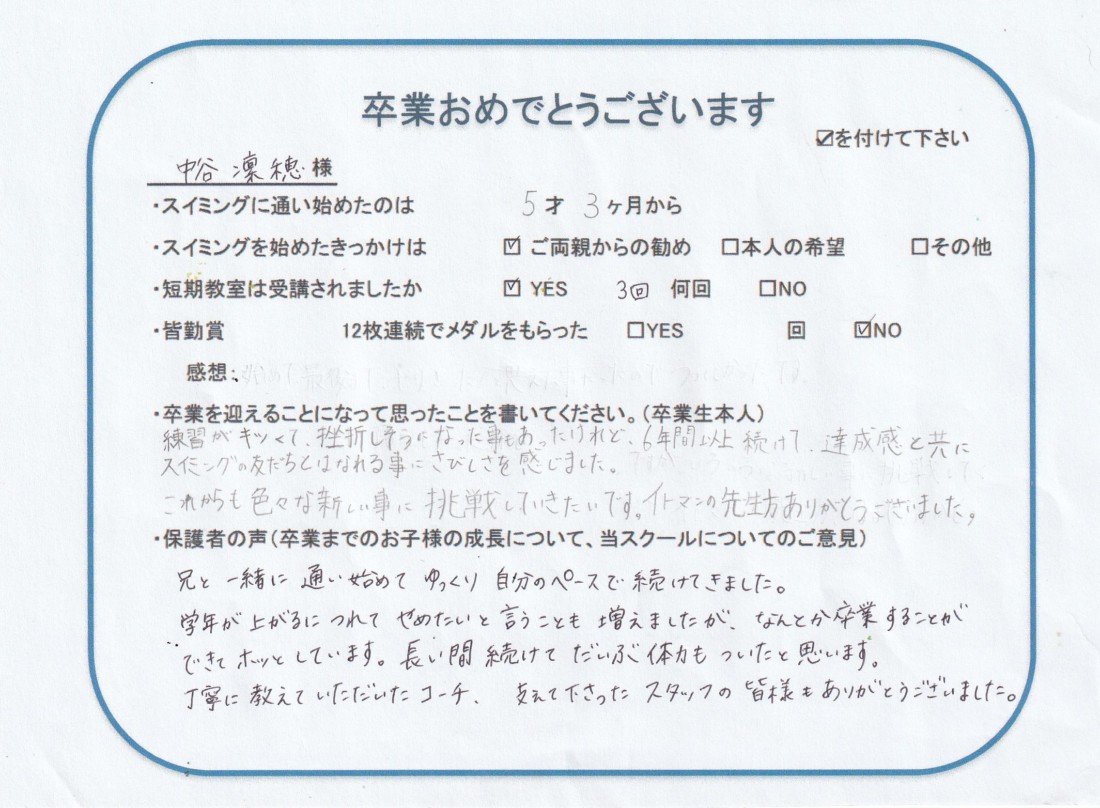 卒業おめでとうございます
☑を付けて下さい
中谷 凛穂 様
・スイミングに通い始めたのは 5才 3ヶ月から
・スイミングを始めたきっかけは ☑ご両親からの勧め □本人の希望 □その他
・短期教室は受講されましたか ☑YES 3回 何回 □NO
・皆勤賞 12枚連続でメダルをもらった □YES 回 ☑NO
感想：
・卒業を迎えることになって思ったことを書いてください。（卒業生本人）
練習がキツくて、挫折しそうになった事もあったけれど、6年間以上続けて、達成感と共に
スイミングの友だちとはなれる事にさびしさを感じました。
これからも色々な新しい事に挑戦していきたいです。イトマンの先生方ありがとうございました。
・保護者の声（卒業までのお子様の成長について、当スクールについてのご意見）
兄と一緒に通い始めてゆっくり自分のペースで続けてきました。
学年が上がるにつれてやめたいと言うことも増えましたが、なんとか卒業することが
できてホッとしています。長い間続けてだいぶ体力もついたと思います。
丁寧に教えていただいたコーチ、支えて下さったスタッフの皆様もありがとうございました。